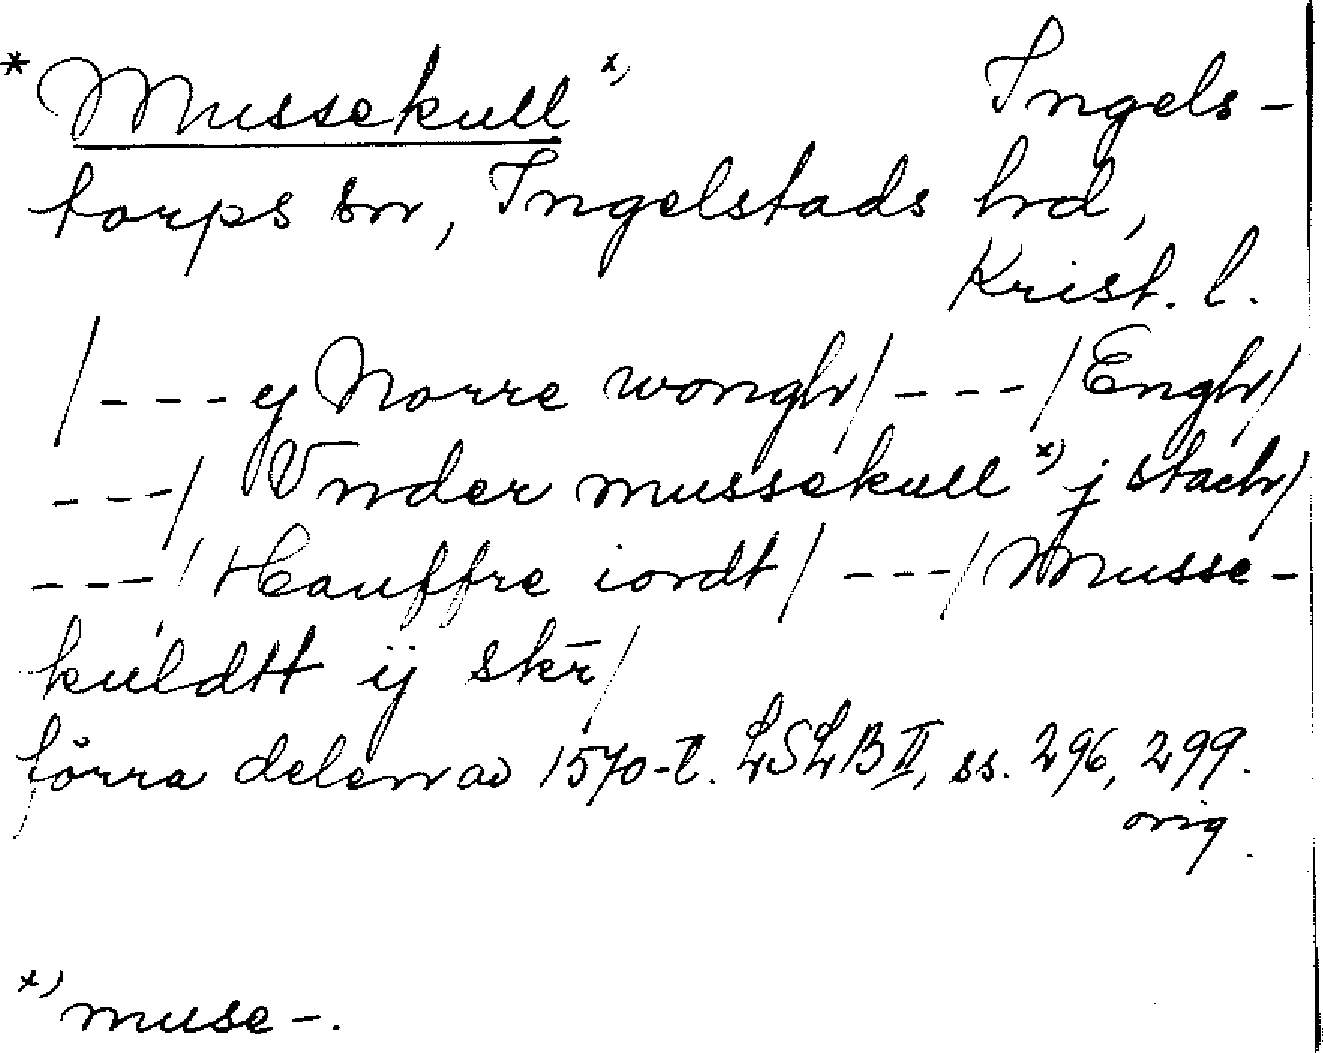 * Mussekull x) Ingels-
torps sn, Ingelstads hrd,
Krist. l.
/---ij Norre wongh/---/Engh/
---/ Vnder mussekull x) j stach/
---/ Hauffre iordt/---/Musse-
kuldtt ij skr/
förra delen av 1570-t. LSLB II, ss. 296, 299.
orig.
x) muse-.